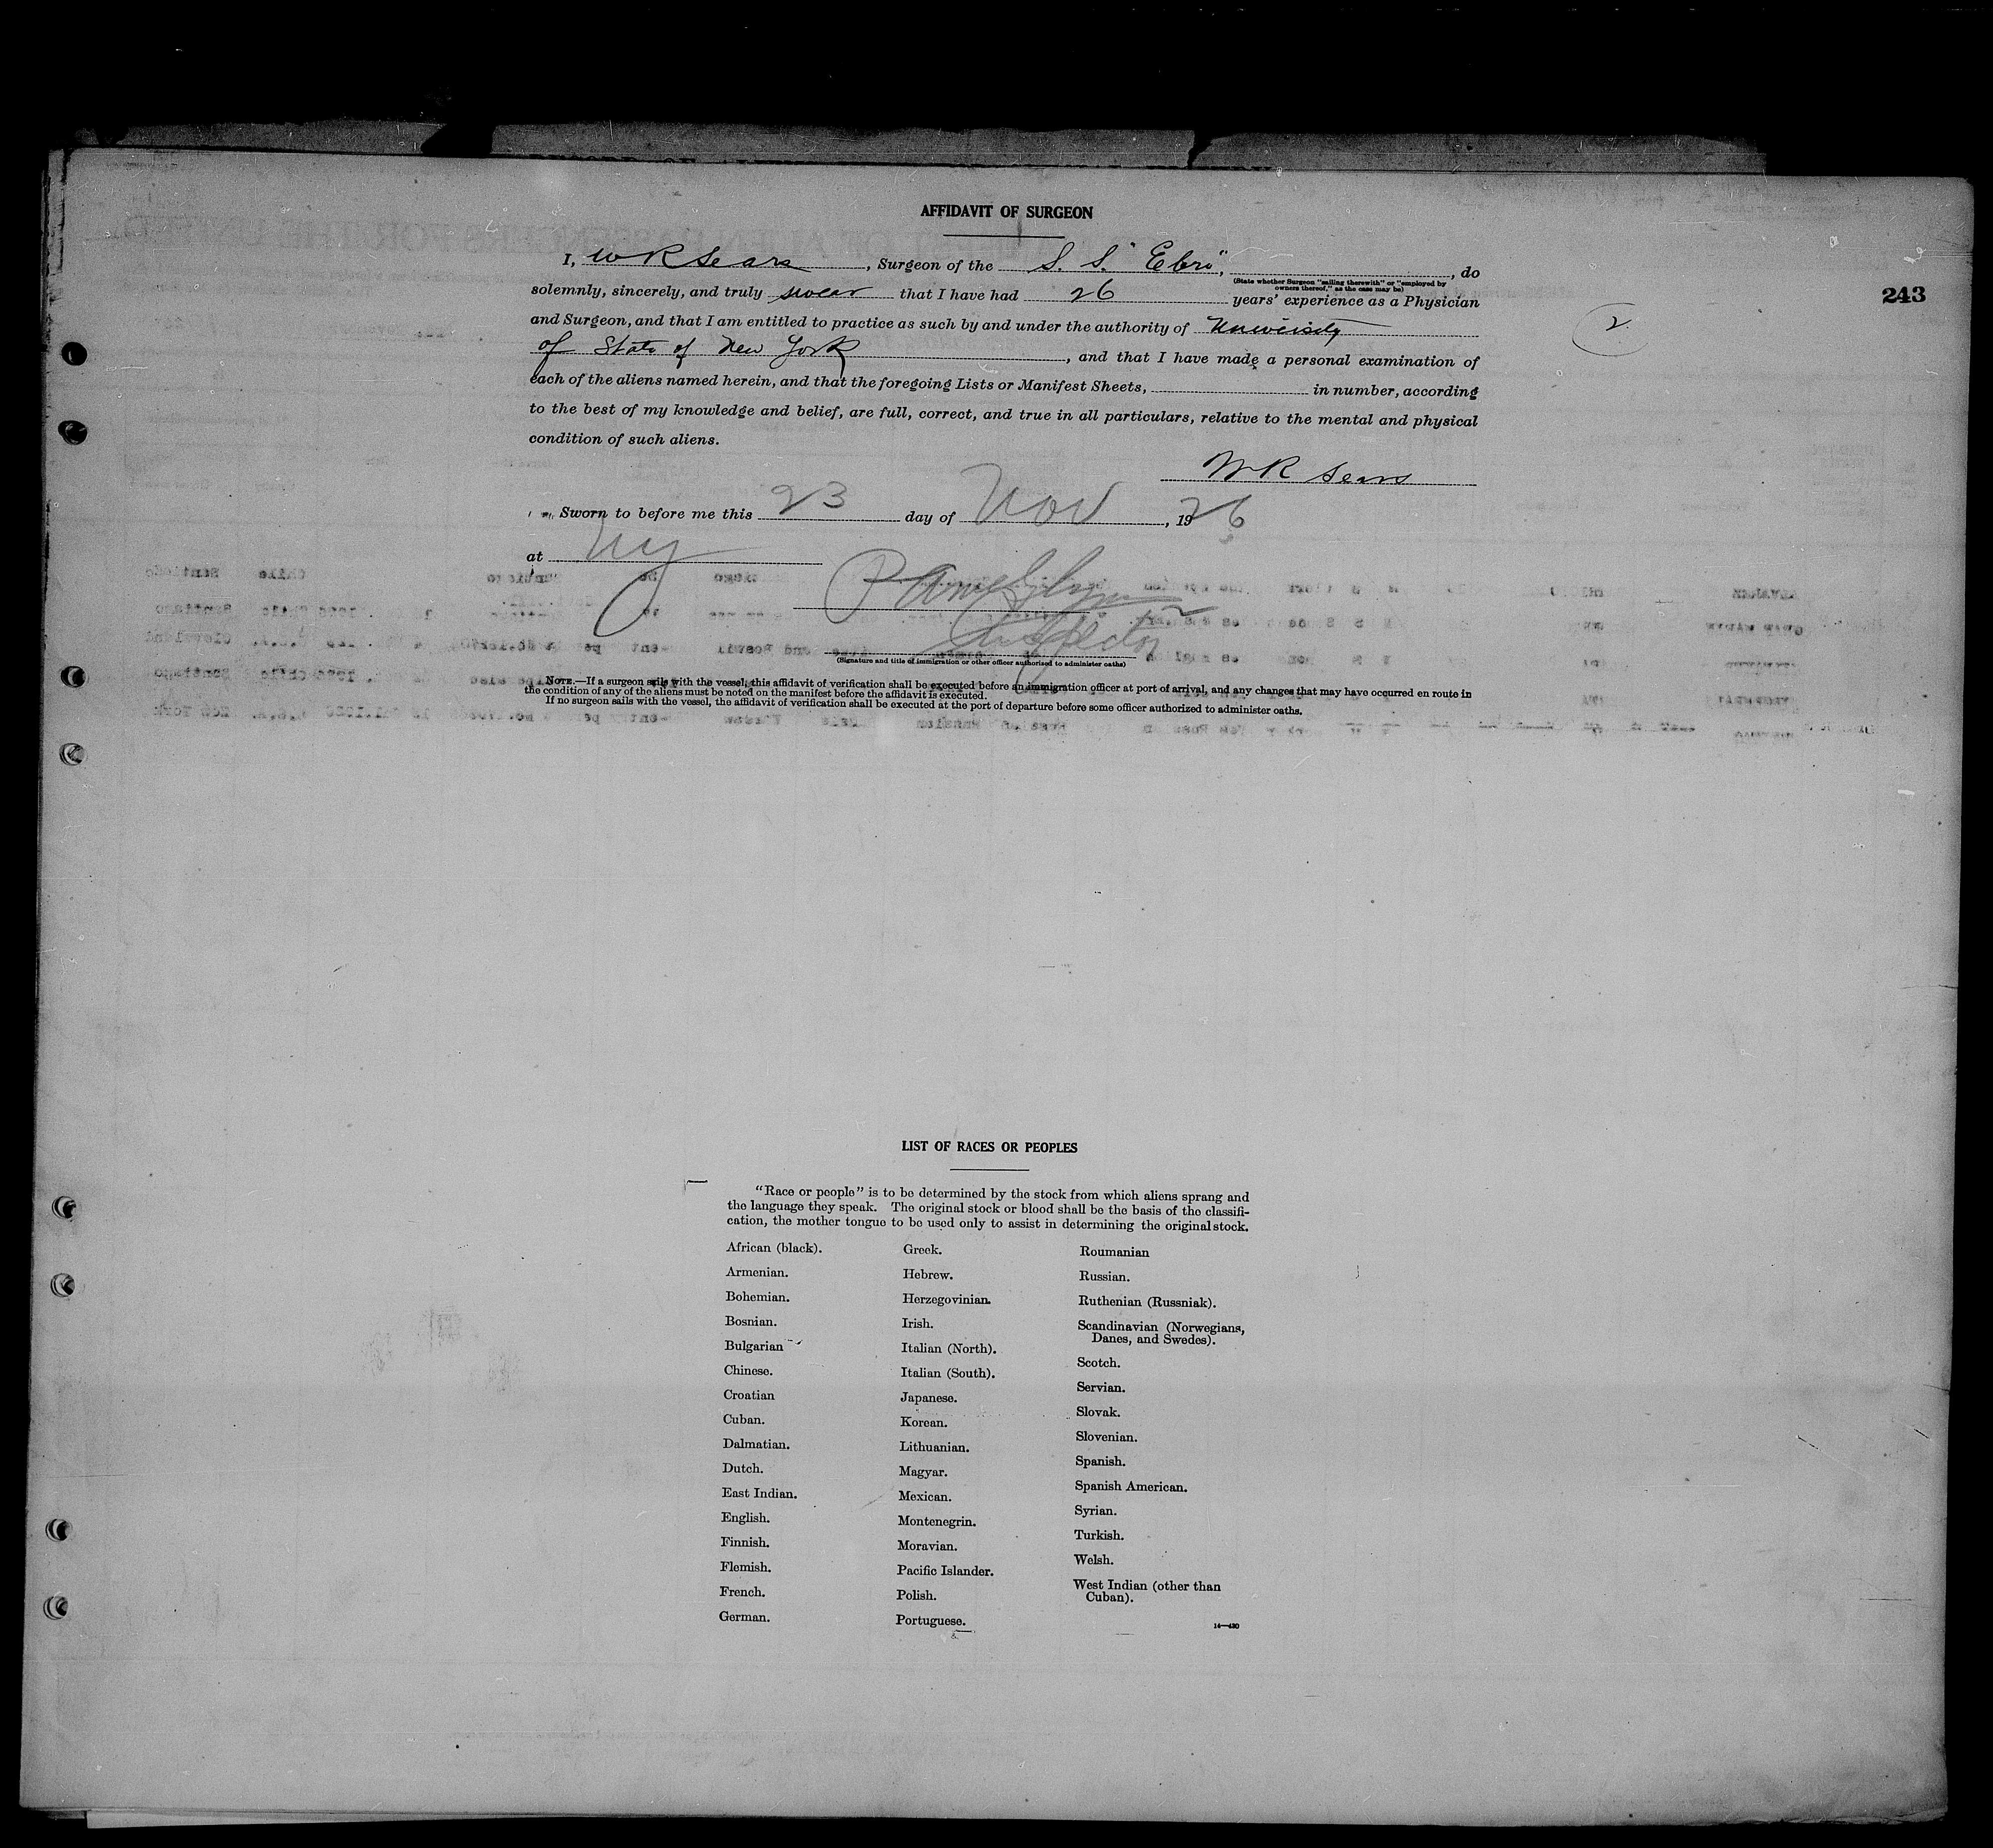 AFFIDAVIT OF SURGEON
I, W R Sears, Surgeon of the S. S. "Ebro", , do
(State whether Surgeon "sailing therewith" or "employed by owners thereof," as the case may be)
solemnly, sincerely, and truly swear that I have had 26 years' experience as a Physician
243
2.
and Surgeon, and that I am entitled to practice as such by and under the authority of University
of State of New York, and that I have made a personal examination of
each of the aliens named herein, and that the foregoing Lists or Manifest Sheets, in number, according
to the best of my knowledge and belief, are full, correct, and true in all particulars, relative to the mental and physical
condition of such aliens.
W R Sears
Sworn to before me this 23 day of Nov, 1926
at NY
Inspector
(Signature and title of immigration or other officer authorized to administer oaths)
NOTE.—If a surgeon sails with the vessel, this affidavit of verification shall be executed before an immigration officer at port of arrival, and any changes that may have occurred en route in
the condition of any of the aliens must be noted on the manifest before the affidavit is executed.
If no surgeon sails with the vessel, the affidavit of verification shall be executed at the port of departure before some officer authorized to administer oaths.
LIST OF RACES OR PEOPLES
"Race or people" is to be determined by the stock from which aliens sprang and
the language they speak. The original stock or blood shall be the basis of the classifi-
cation, the mother tongue to be used only to assist in determining the original stock.
African (black).
Armenian.
Bohemian.
Bosnian.
Bulgarian
Chinese.
Croatian
Cuban.
Dalmatian.
Dutch.
East Indian.
English.
Finnish.
Flemish.
French.
German.
Greek.
Hebrew.
Herzegovinian.
Irish.
Italian (North).
Italian (South).
Japanese.
Korean.
Lithuanian.
Magyar.
Mexican.
Montenegrin.
Moravian.
Pacific Islander.
Polish.
Portuguese.
Roumanian
Russian.
Ruthenian (Russniak).
Scandinavian (Norwegians,
Danes, and Swedes).
Scotch.
Servian.
Slovak.
Slovenian.
Spanish.
Spanish American.
Syrian.
Turkish.
Welsh.
West Indian (other than
Cuban).
14—430